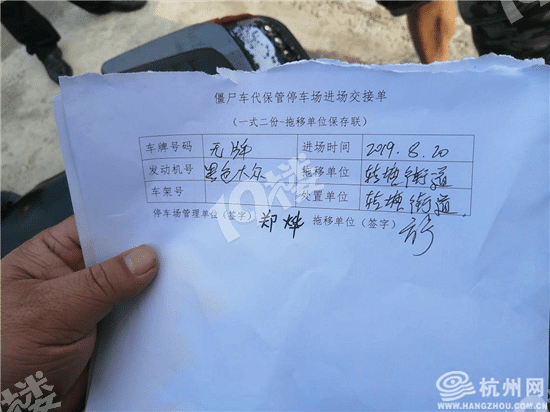 僵尸车代保管停车场进场交接单
（一式二份-拖移单位保存联）
车牌号码 无牌 进场时间 2019.8.20
发动机号 黑色大众 拖移单位 转塘街道
车架号 处置单位 转塘街道
停车场管理单位(签字) 郑烨 拖移单位(签字)
19楼
19楼
杭州网
WWW.HANGZHOU.COM.CN